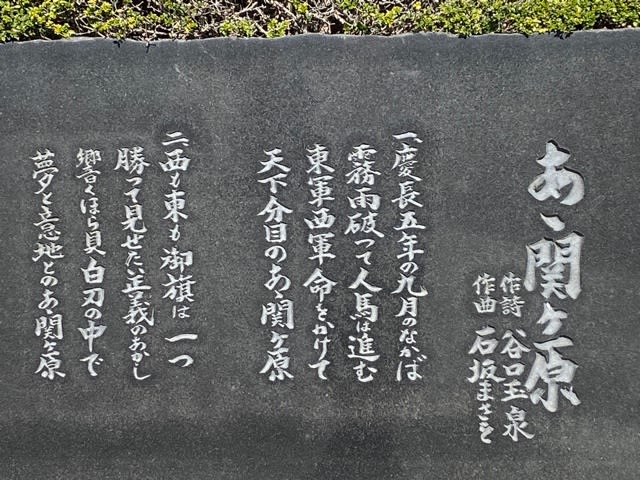 あゝ関ヶ原
作詩 谷口玉泉
作曲 石坂まさを
一、慶長五年の九月のなかば
霧雨破って人馬は進む
東軍西軍命をかけて
天下分目のあゝ関ヶ原
二、西も東も御旗は一つ
勝って見せたい正義のあかし
響くほら貝白刃の中で
夢と意地とのあゝ関ヶ原